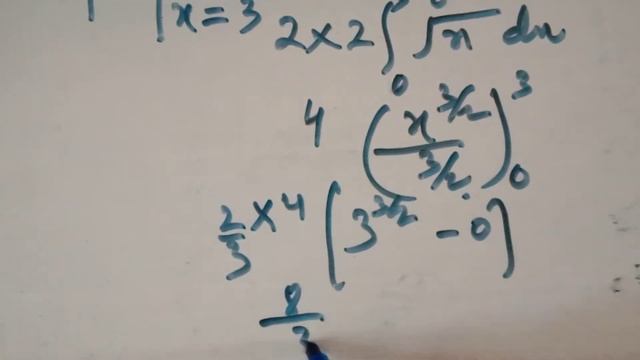 x = 3
2 × 2 ∫₀ √x dx
4 (x^{3/2} / 3/2)₀³
2/3 × 4 [3^{3/2} - 0]
8/3